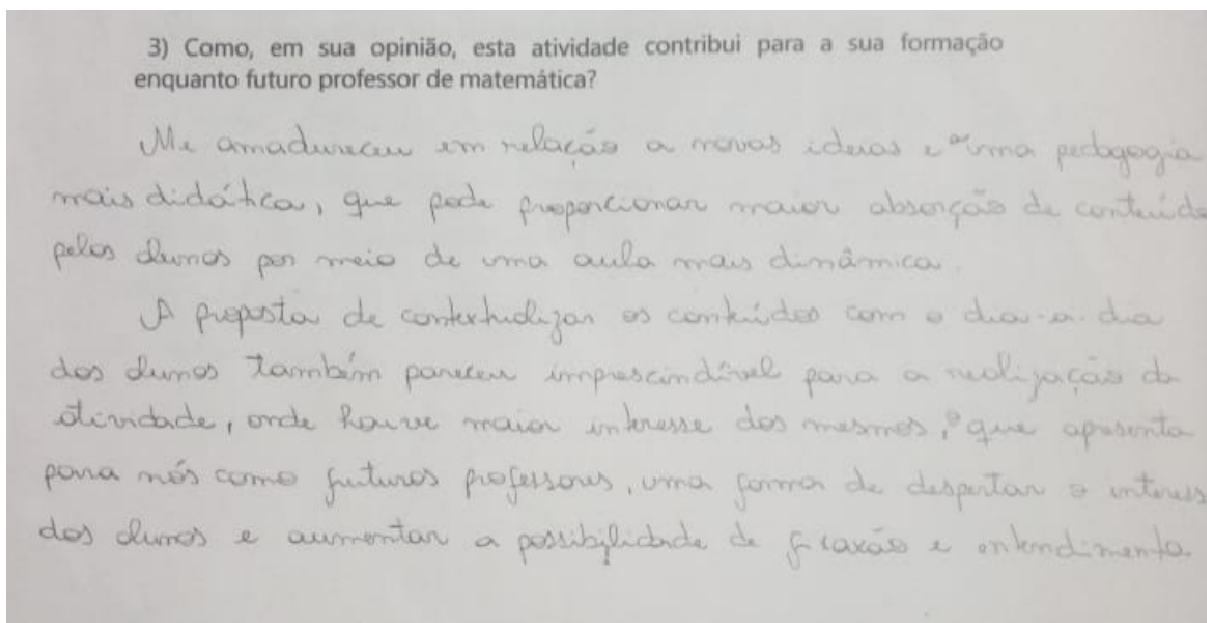 3) Como, em sua opinião, esta atividade contribui para a sua formação
enquanto futuro professor de matemática?
Me amadureceu em relação a novas ideias e a uma pedagogia
mais didática, que pode proporcionar maior absorção de conteúdo
pelos alunos por meio de uma aula mais dinâmica.
A proposta de contextualizar os conteúdos com o dia-a-dia
dos alunos também pareceu imprescindível para a realização da
atividade, onde houve maior interesse dos mesmos, o que apresenta
para nós como futuros professores, uma forma de despertar o interess
dos alunos e aumentar a possibilidade de fixação e entendimento